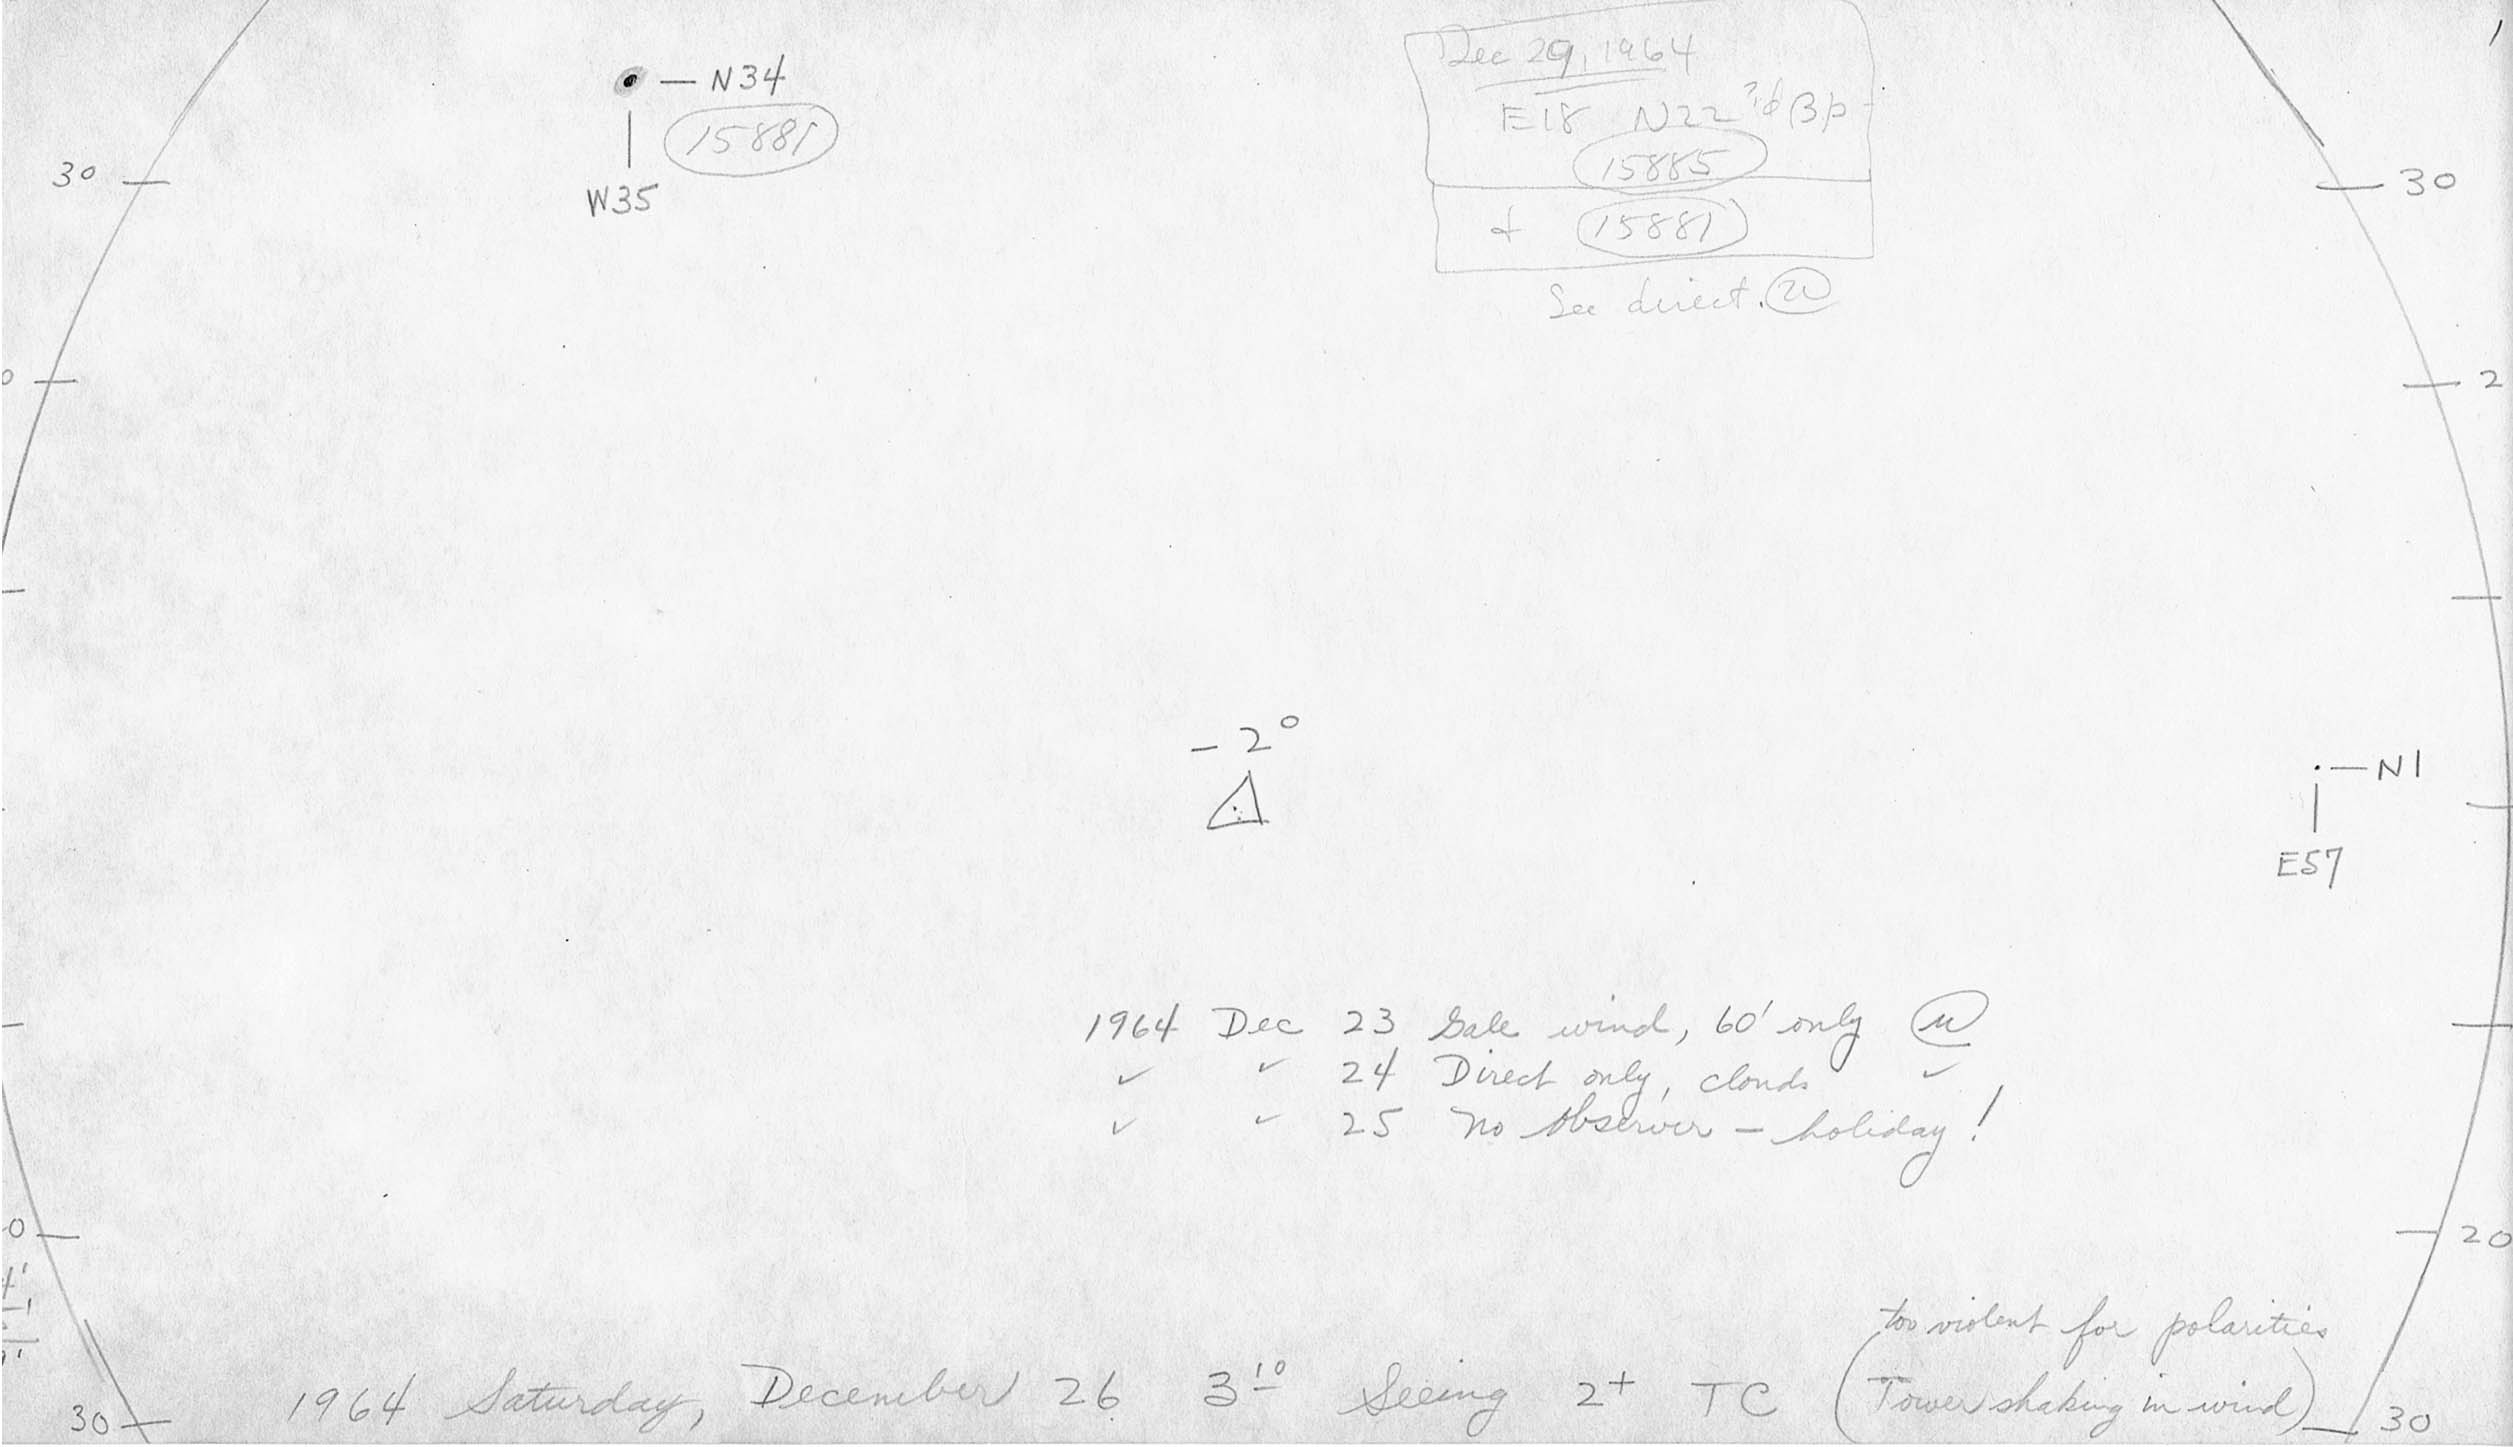 Dec 29, 1964
E18 N22 ?d βp
15885
+ 15881
See direct.
— N34
15881
W35
30
30
2
-2°
— N1
E57
1964 Dec 23 Gale wind, 60' only
✓ ✓ 24 Direct only, clouds ✓
✓ ✓ 25 No observer — holiday!
0
20
too violent for polarities
1964 Saturday, December 26 3¹⁰ Seeing 2+ TC (Tower shaking in wind)
30
30